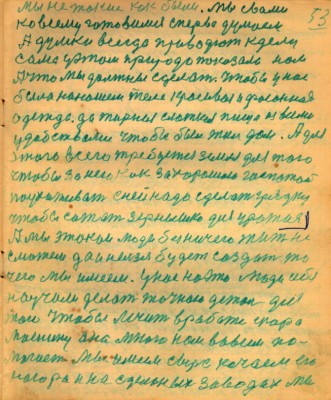 Мы не такие как были. Мы с вами 53
ко всему готовимся сперва думаем
А думки всегда приводют к делу
сама утом природо показала нам
А что мы должны сделат. чтобы у нас
была на нашем теле красивая фасонная
одежда. да жирная слоткая пища со всеми
удобствами чтобы был жил дом. А для
этого всего требуется земля для того
чтобы за ней как за хорошой госпожой
поухаживат с ней надо сделат грядку
чтобы сажат зернышко для урожая)
А мы этокои люди без ничего жит не
сможем да и нельзя будет создат то
чего мы имеем. У нас на это люди себя
научили делат точного детол для
того чтобы лучит в работе
машину она много нам в овсем по-
могает. Мы имеем сырё качаем его
на заводах мы